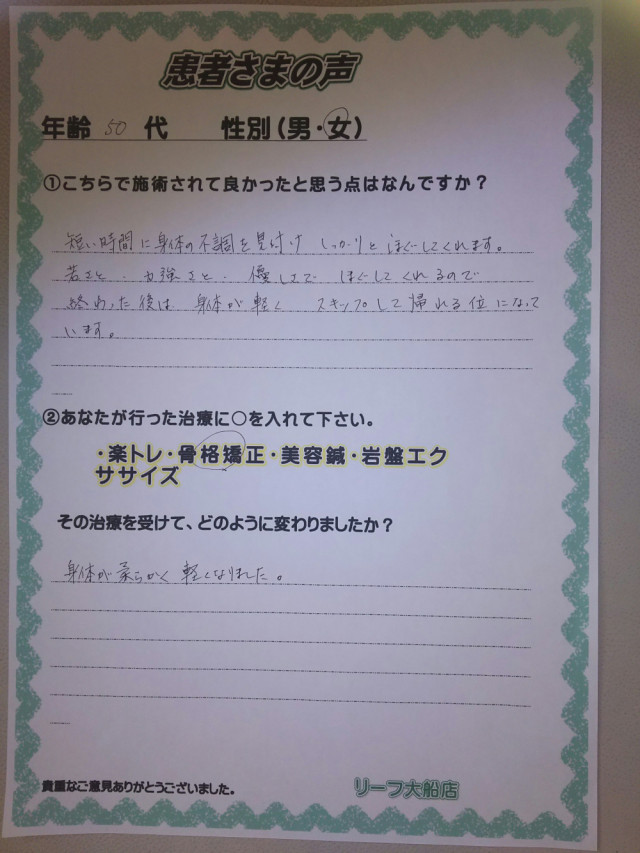 患者さまの声
年齢 50 代 性別(男・女)
①こちらで施術されて良かったと思う点はなんですか?
短い時間に身体の不調を見付け しっかりと ほぐしてくれます。
若さと・力強さと・優しさで ほぐしてくれるので
終わった後は 身体が軽く スキップして帰れる位になって
います。
②あなたが行った治療に○を入れて下さい。
・楽トレ・骨格矯正・美容鍼・岩盤エク
ササイズ
その治療を受けて、どのように変わりましたか?
身体が柔らかく 軽くなりました。
貴重なご意見ありがとうございました。
リーフ大船店